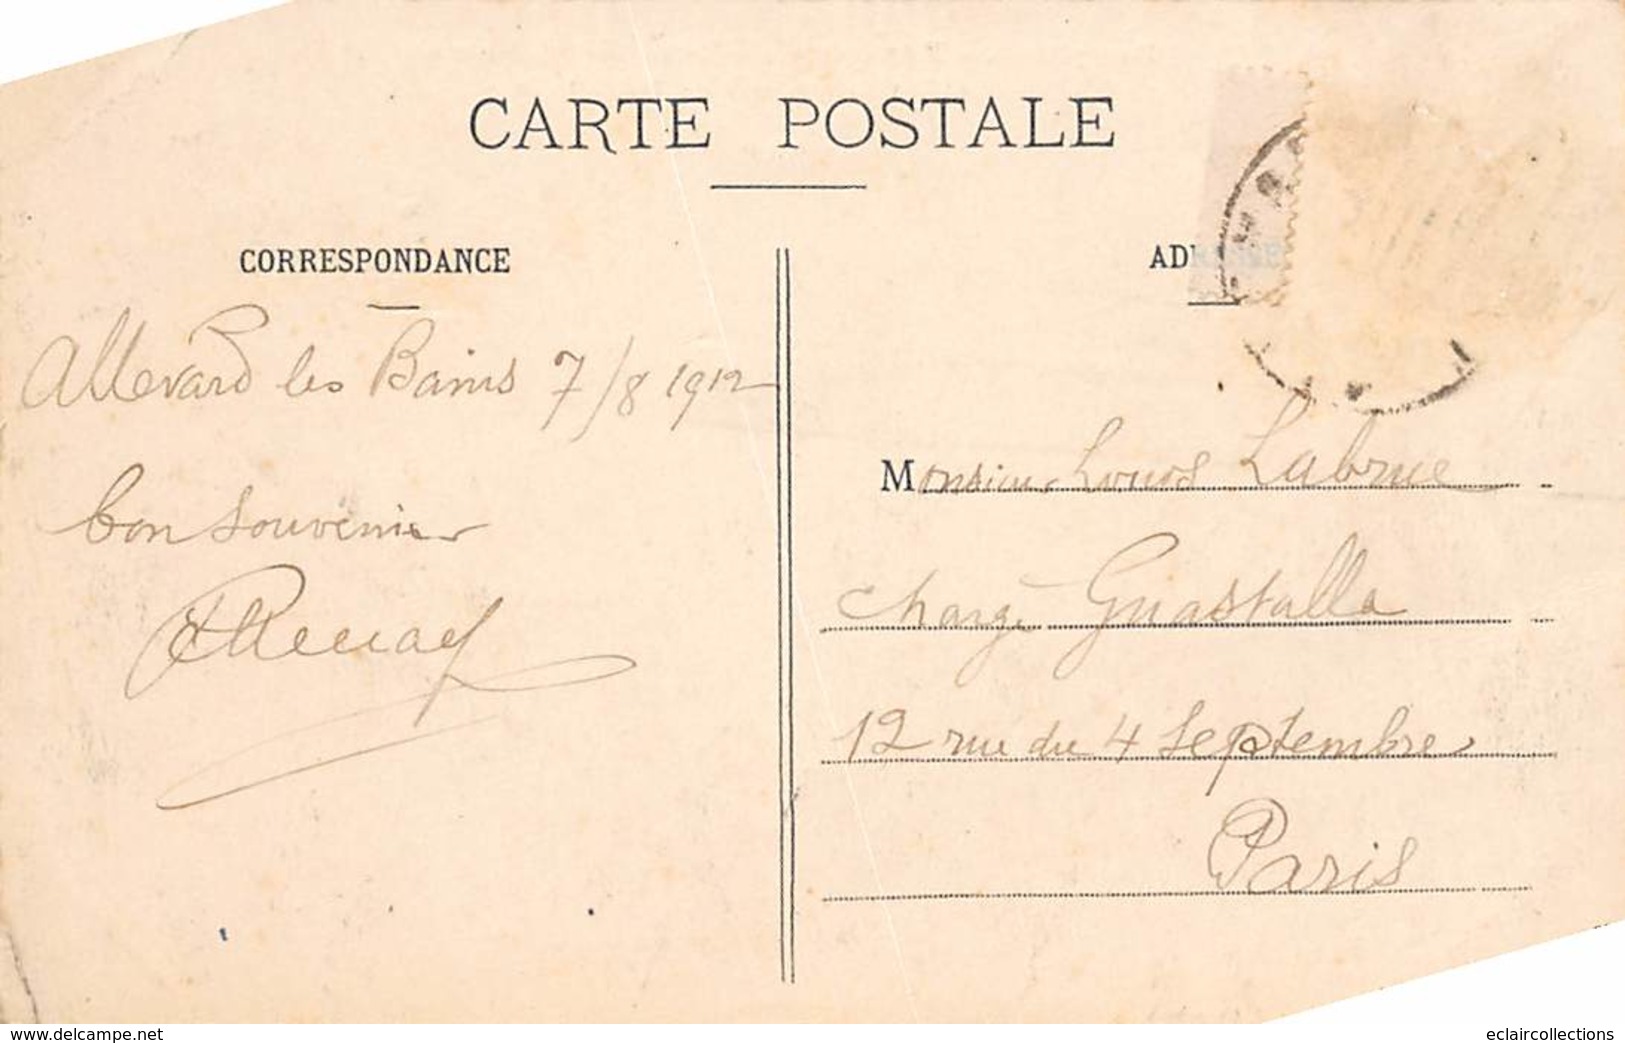 CARTE POSTALE
CORRESPONDANCE
Allevard les Bains 7/8 1912
bon souvenir
ADRESSE
Monsieur Louis Labrue
chargé Guastalla
12 rue du 4 septembre
Paris
www.delcampe.net
eclaircollections